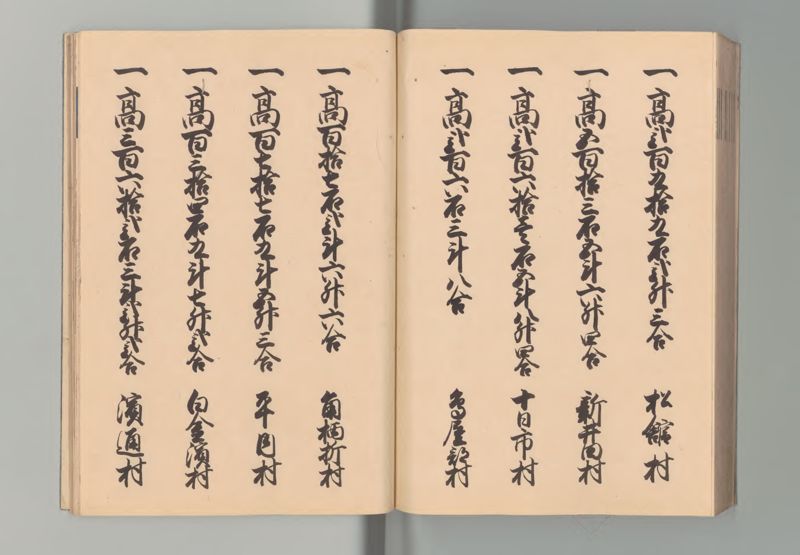 一高弐百五拾九石弐升三合 松舘村
一高五百拾三石五斗六升四合 新井田村
一高弐百六拾壱石五斗八升四合 十日市村
一高弐百六石三斗八合 鳥屋部村
一高百拾七石弐斗六升六合 角柄折村
一高百七拾七石九斗五升三合 平内村
一高百三拾四石九斗七升弐合 白金濱村
一高三百六拾弐石三斗弐升弐合 濱通村